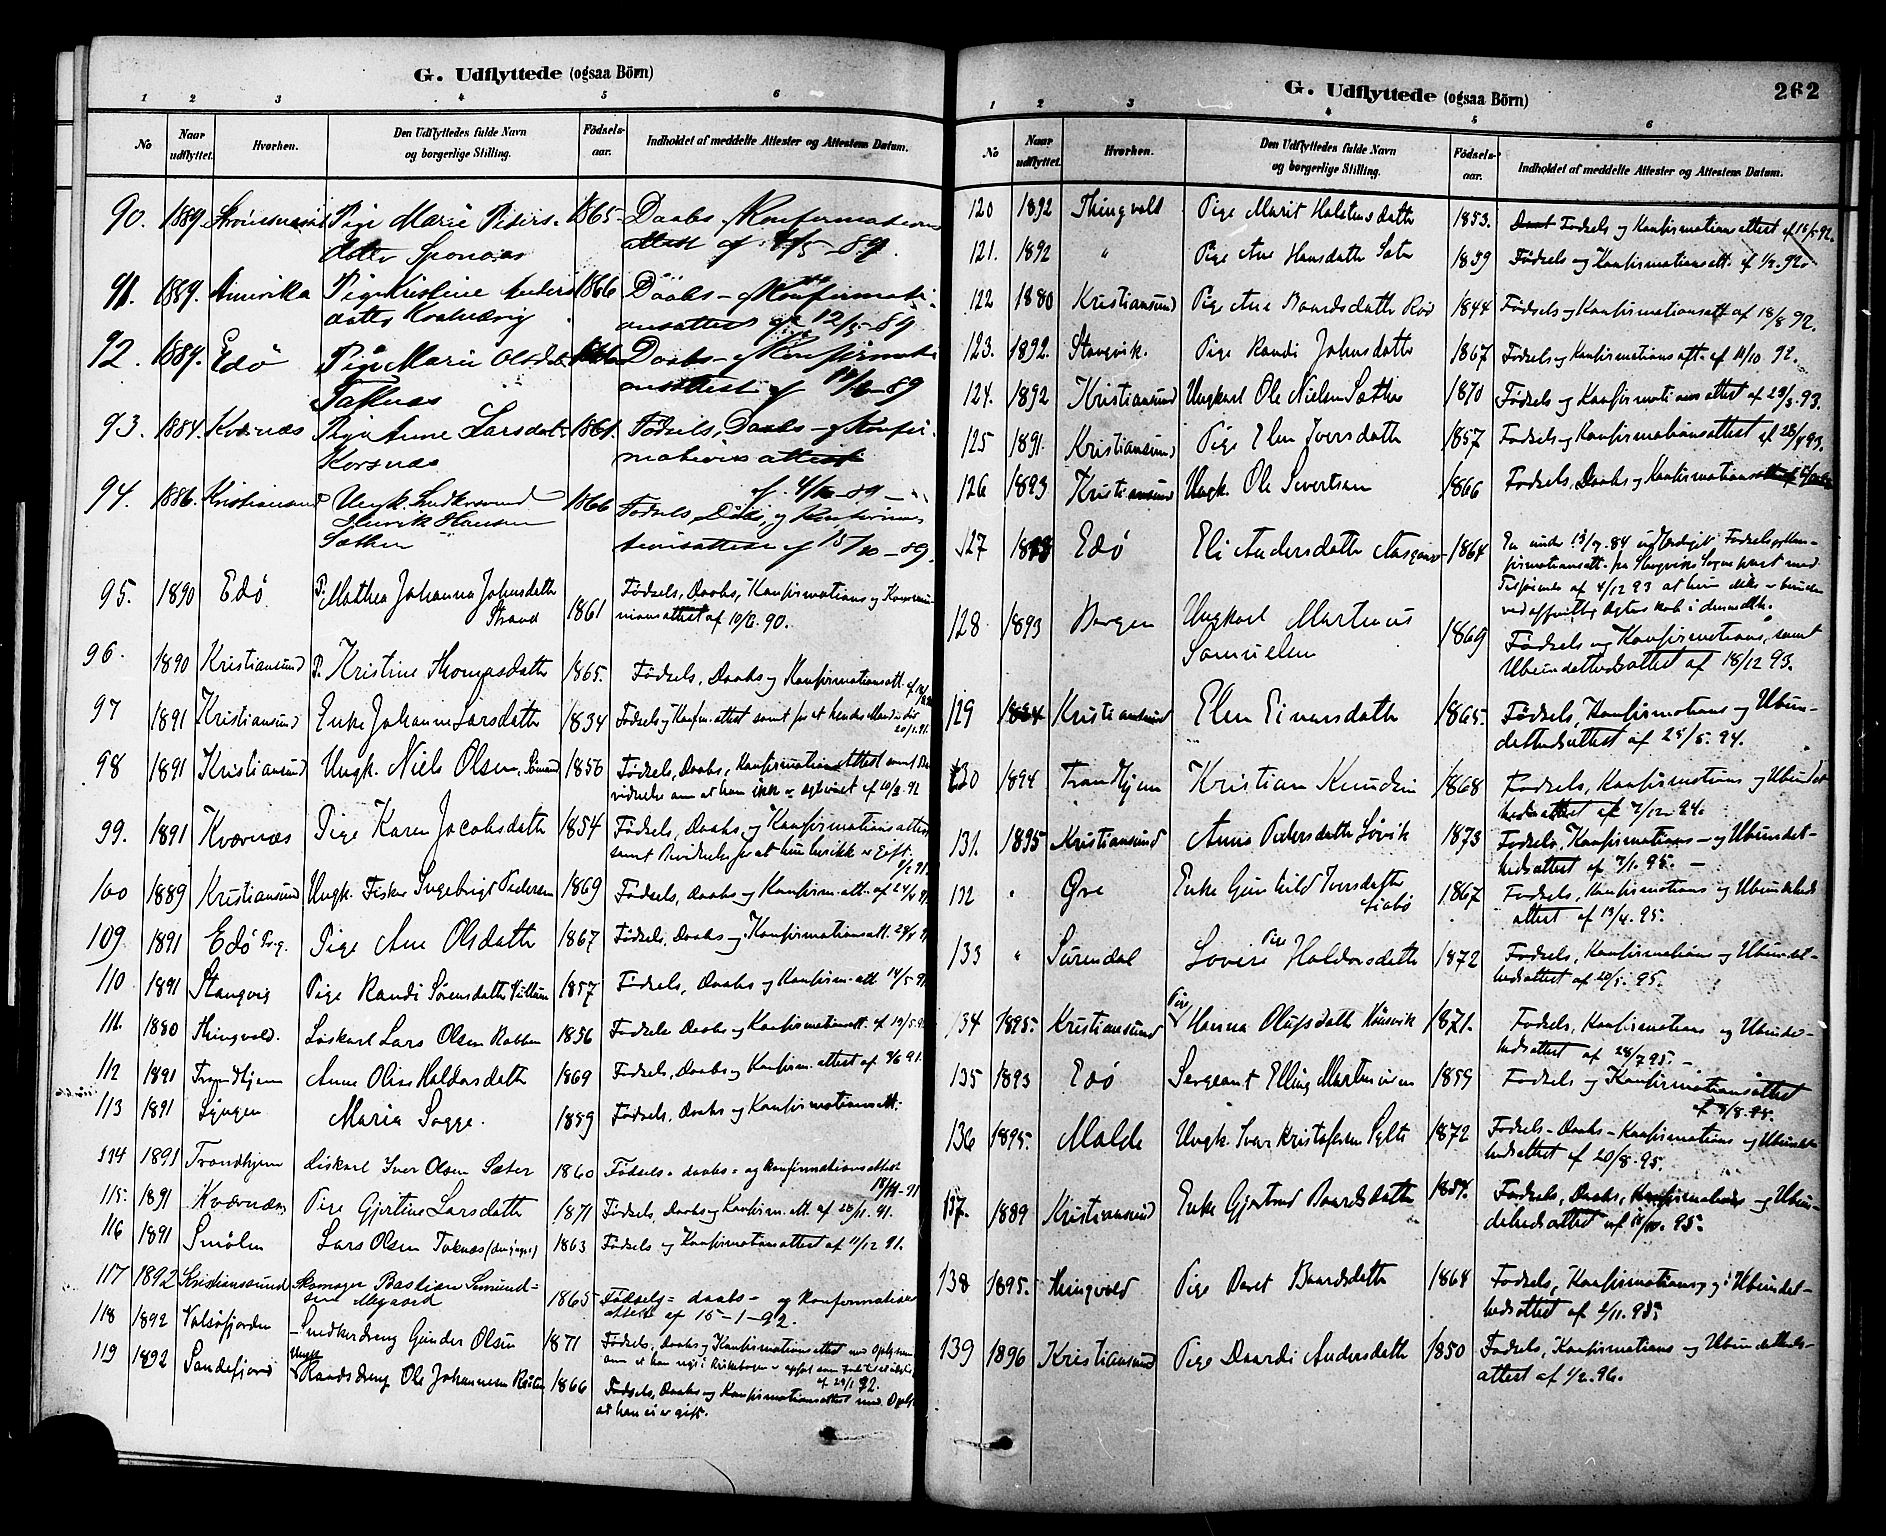 G. Udflyttede (ogsaa Börn)
1 2 3 4 5 6
No Naar udflyttet. Hvorhen. Den Udflyttedes fulde Navn og borgerlige Stilling. Födsels-aar. Indholdet af meddelte Attester og Attestens Datum.
90. 1889 Pige Marie Peders- 1865 Daabs- og Konfirmations
datter attest af 4/5-89
91. 1889. Amerika Pige Kristine Anders 1866 Daabs- og Konfirmati-
datter onsattest af 12/5-89
92. 1889. Edø Pige Marie Olsdat 1866 Daabs- og Konfirmati
Taknæs onsattest af
93. 1884. Kvernæs Pige Anne Larsdat 1861. Fødsels, Daabs- og Konfir-
Korsnæs mations attest
af 4/10-89
94. 1886. Kristiansund Ungk. 1866 Fødsels, Daabs, og Konfirma-
Henrik Hansen tionsattest af 15/10-89.
Sæther
95. 1890 Edø P. Mathea Johanna Johnsdatter 1861 Fødsels, Daabs, Konfirmations og Kommu-
Strand nionsattest af 10/6.90.
96. 1890 Kristiansund P. Kristine Thomasdatter 1865. Fødsels, Daabs og Konfirmationsatt. af
97 1891 Kristiansund Enke Johanne Larsdatter 1834 Fødsels og Konfirm. attest samt for at hendes Mand er død
20/1.91.
98 1891 Kristiansund Ungk. Niels Olsen 1856 Fødsels, Daabs, Konfirmations Attest samt Be
vidnelse om at han ikke er ægteviet af
99. 1891 Kvernæs Pige Karen Jacobsdatter 1854 Fødsels, Daabs, og Konfirmations attest
samt Bevidnelse for at hun ikke er Gift.
100 1889 Kristiansund Ungk. Fisker Ingebrigt Pedersen 1869 Fødsels, Daabs og Konfirm. att. af
109 1891 Edø Prg. Pige Ane Olsdatter 1867 Fødsels, Daabs og Konfirmationsatt.
110 1891 Stangvig Pige Randi Sørensdatter 1857 Fødsels, Daabs og Konfirm. att 14/5.91
111. 1880 Thingvold. Løskarl Lars Olsen 1856 Fødsels Daabs og Konfirmationsatt. af
112 1891 Trondhjem Anne Oline Haldorsdatter 1869 Fødsels, Daabs og Konfirm. attest af 91.
113 1891 Lyngen Maria Sogge. 1859 Fødsels, Daabs og Konfirmationsatt.
114 1891 Trondhjem Løskarl Iver Olsen Sæter 1860 Fødsels- daabs- og konfirmationsattest
115. 1891 Kvernæs Pige Gjertine Larsdatter 1871 Fødsels, Daabs og Konfirm. att. af 28/11.91.
116 1891 Smølen Lars Olsen Taknæs 1863 Fødsels og Konfirmationsattest af 11/12 91.
117 1892 Kristianssund Skomager Bastian 1865 Fødsels- daabs- og konfirmations
attest af 15-1-92.
118 1892 Valsøfjorden Snedkerdreng Gunder Olsen 1871 Fødsels, Daabs og Konfirmationsattest med Oplysn
119 1892 Sandefjord Ungk. Ole Johannesen 1866 Fødsels, Daabs og Konfirmationsattest med
at han ei er gift.
G. Udflyttede (ogsaa Börn) 262
1 2 3 4 5 6
No Naar udflyttet. Hvorhen. Den Udflyttedes fulde Navn og borgerlige Stilling. Födsels-aar. Indholdet af meddelte Attester og Attestens Datum.
120 1892 Thingvold Pige Marit Halstensdatter 1853. Fødsels og Konfirmations attest af
121. 1892 " Pige Ane Hansdatter Sæter 1839 Fødsels og Konfirmationsatt. af
122 1880 Kristiansund Pige Ane Baardsdatter Rød 1844 Fødsels og Konfirmationsatt af 18/8 92.
123. 1892. Stangvik. Pige Randi Johnsdatter 1867 Fødsels og Konfirmations att. af 92.
124. 1892 Kristiansund Ungkarl Ole Nielsen Sæther 1870 Fødsels og Konfirmations attest af 93.
125 1891. Kristiansund Pige Elen Iversdatter 1857 Fødsels og Konfirmationsattest af 93.
126 1893 Kristiansund Ungk. Ole Sivertsen 1866 Fødsels, Daabs og Konfirmations
127 Edø Eli Andersdatter 1864 En under 13/9.84 udfærdiget Fødsels og Kon-
firmationsatt. fra Stangviks Sognepræst med
Tilføiende af 4/12 93 at hun ikke er bunden
ved afgivelig Ægteskab i
128 1893 Bergen Ungkarl Martinus 1869 Fødsels og Konfirmations, samt
Samuelsen Ubundethedsattest af 18/12 93.
129 1894 Kristiansund Elen Einarsdatter 1865. Fødsels, Konfirmations og Ubun-
dethedsattest af 25/5.94.
130 1894 Trondhjem Kristian Knudsen 1868 Fødsels, Konfirmations og Ubundet
hedsattest af 7/12.94.
131. 1895 Kristiansund Anne Pedersdatter Løvik 1873 Fødsels, Konfirmations- og Ubundet-
hedsattest af 7/1.95.
132 " Øre Enke Gunhild Iversdatter 1867 Fødsels, Konfirmations og Ubundetheds
attest af 13/4.95.
133 " Surendal Pige Lovise Haldorsdatter 1872 Fødsels, Konfirmations og Ubundet-
hedsattest af 20/5.95.
134 1895. Kristiansund Pige Hanna Olufsdatter Hønsvik 1871. Fødsels, Konfirmations og Ubundet-
hedsattest af 28/7 95.
135 1893 Edø Sergeant Elling Martinusen 1859 Fødsels og Konfirmationsattest
136 1895. Molde Ungk. Ivar Kristofersen Sylte 1872 Fødsels- Daabs- Konfirmations og Ubundet
hedsattest af 20/8.95.
137. 1889 Kristiansund Enke Gjertrud Baardsdatter Fødsels, Daabs, Konfirmations og Ubun-
dethedsattest af 95.
138 1895. Thingvold Pige Beret Baardsdatter 1864 Fødsels, Konfirmations og Ubundet-
hedsattest af 2/11.95.
139 1896 Kristiansund Pige Baardi Andersdatter 1850 Fødsels, Konfirmations og Ubundetheds-
attest af 1/2.96.